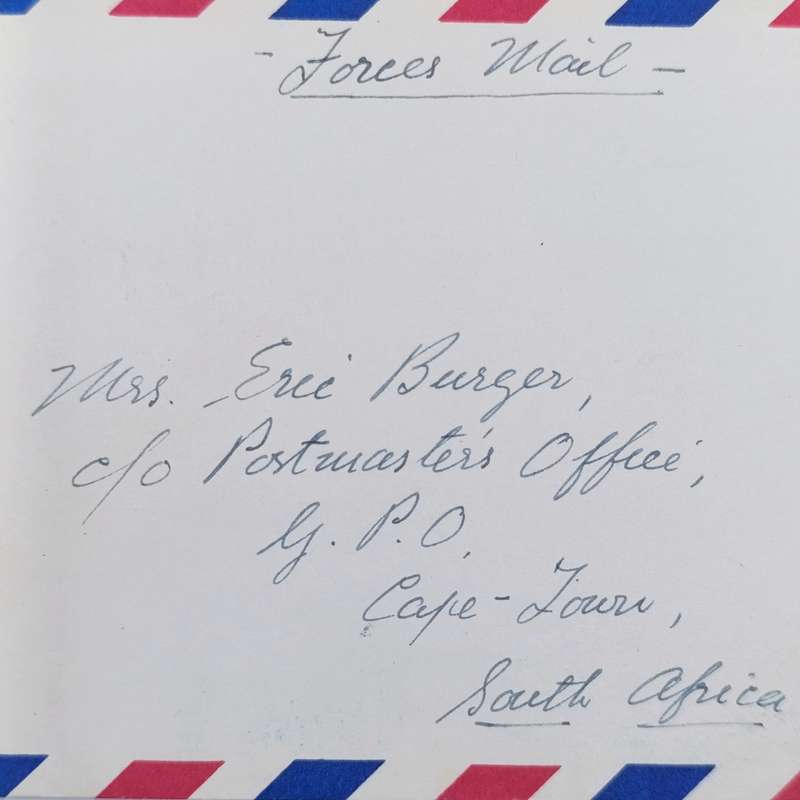 - Forces Mail -
Mrs. Eric Burger,
c/o Postmaster's Office,
G. P.O,
Cape-Town,
South Africa